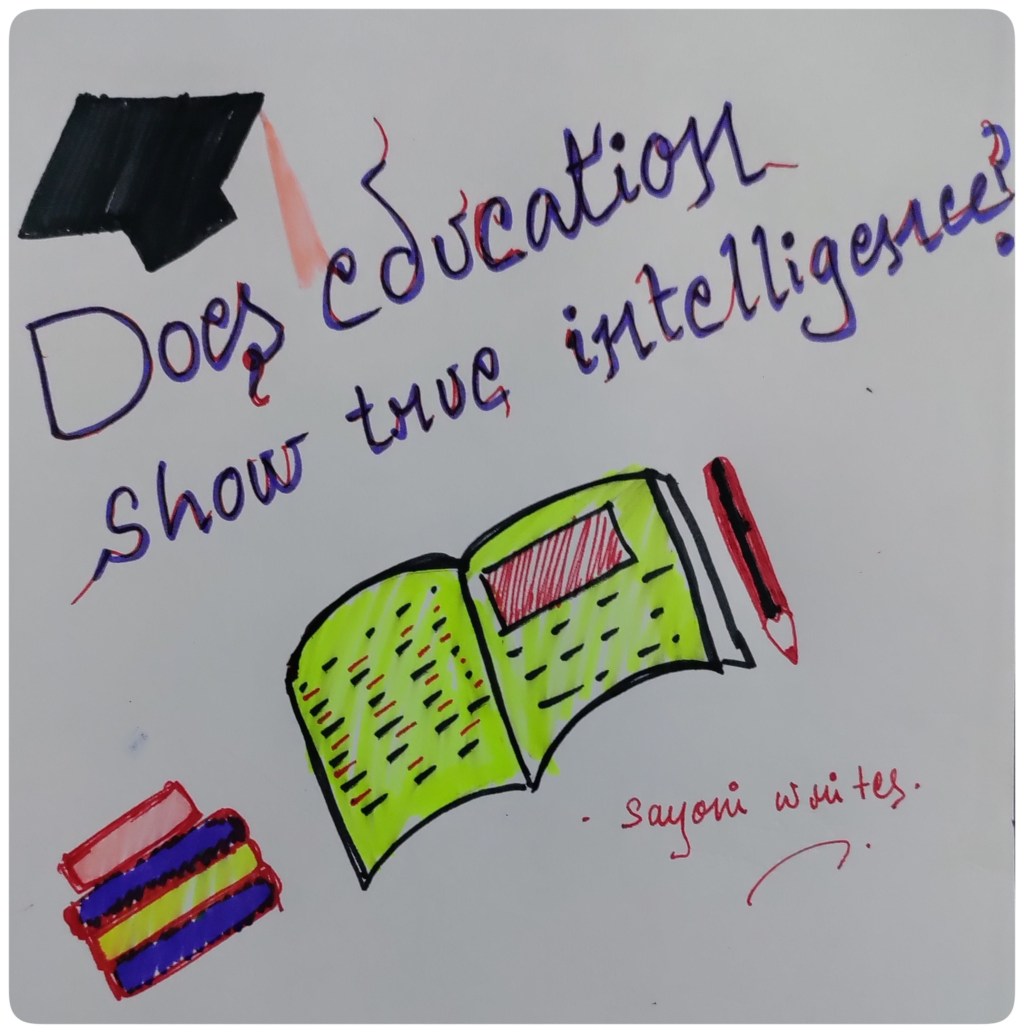 Does education
show true intelligence?
. sayoni writes.